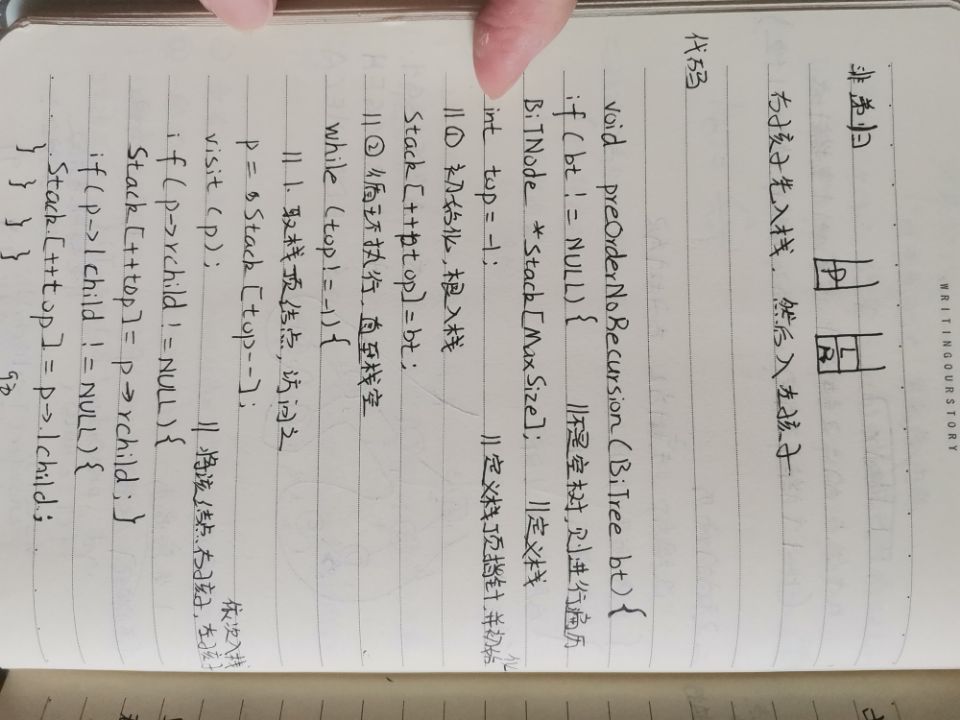 WRITINGOURSTORY
非递归
P
L
R
右孩子先入栈，然后入左孩子
代码
void preOrderNoRecursion(BiTree bt){
if(bt != NULL){ //不是空树，则进行遍历
BiTNode *Stack[MaxSize]; //定义栈
int top=-1; //定义栈顶指针并初始化
//① 初始化，根入栈
Stack[++top]=bt;
//② 循环执行，直至栈空
while(top!=-1){
//1.取栈顶结点，访问之
p=Stack[top--];
visit(p); //将该结点右孩子，左孩子依次入栈
if(p->rchild!=NULL){
Stack[++top]=p->rchild;}
if(p->lchild!=NULL){
Stack[++top]=p->lchild;
} } } }